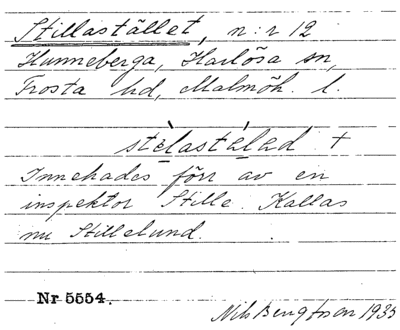 Stillastället, n:r 12
Hunneberga, Harlösa sn,
Frosta hd, Malmöh. l.
stèlastàlad +
Innehades förr av en
inspektor Stille. Kallas
nu Stillelund.
Nr 5554.
Nils Bengtsson 1935